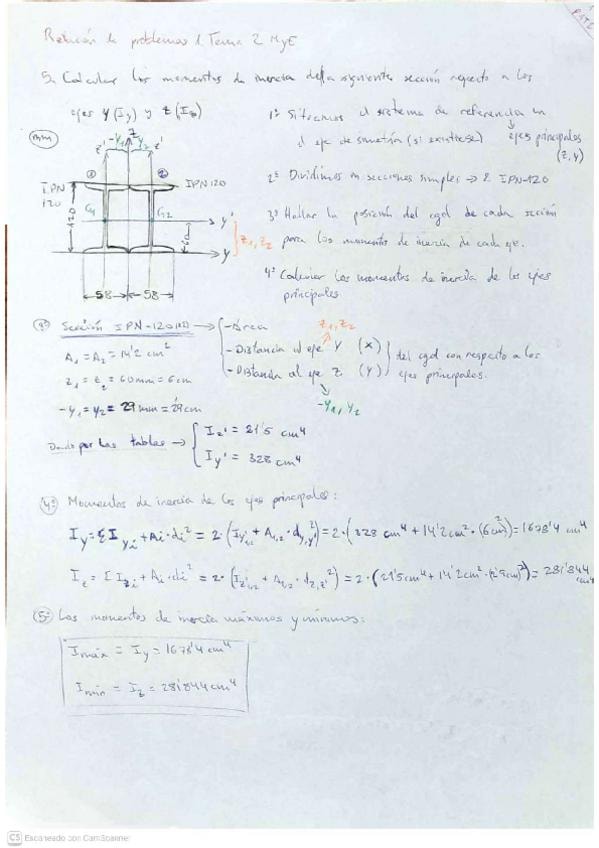 Relación de problemas 1. Tema 2 MyE
5. Calcular los momentos de inercia de la siguiente sección respecto a los
ejes Y (Iy) y Z (Iz)
mm
z' -Y1 Z Y2 z'
① ②
IPN 120
IPN 120
120
G1 G2
y'
z1, z2
60
y
58 58
1º Situamos el sistema de referencia en
el eje de simetría (si existiese) ejes principales
(z, y)
2º Dividimos en secciones simples → 2 IPN-120
3º Hallar la posición del cgol de cada sección
para los momentos de inercia de cada eje.
4º Calcular los momentos de inercia de los ejes
principales
Sección IPN-120 → - Área
z1, z2
- Distancia al eje Y (X)
- Distancia al eje Z (Y)
del cgol con respecto a los
ejes principales.
-Y1, Y2
A1 = A2 = 14'2 cm²
z1 = z2 = 60mm = 6cm
-Y1 = Y2 = 29mm = 2'9cm
Dando por las tablas → Iz' = 21'5 cm⁴
Iy' = 328 cm⁴
4º Momentos de inercia de los ejes principales:
Iy = Σ Iyi + Ai·di² = 2·(Iy'1,2 + A1,2·dy,y'²) = 2·(328 cm⁴ + 14'2cm²·(6cm)²) = 1678'4 cm⁴
Iz = Σ Izi + Ai·di² = 2·(Iz'1,2 + A1,2·dz,z'²) = 2·(21'5cm⁴ + 14'2cm²·(2'9cm)²) = 281'844 cm⁴
5º Los momentos de inercia máximos y mínimos:
Imáx = Iy = 1678'4 cm⁴
Imín = Iz = 281'844 cm⁴
CS Escaneado con CamScanner